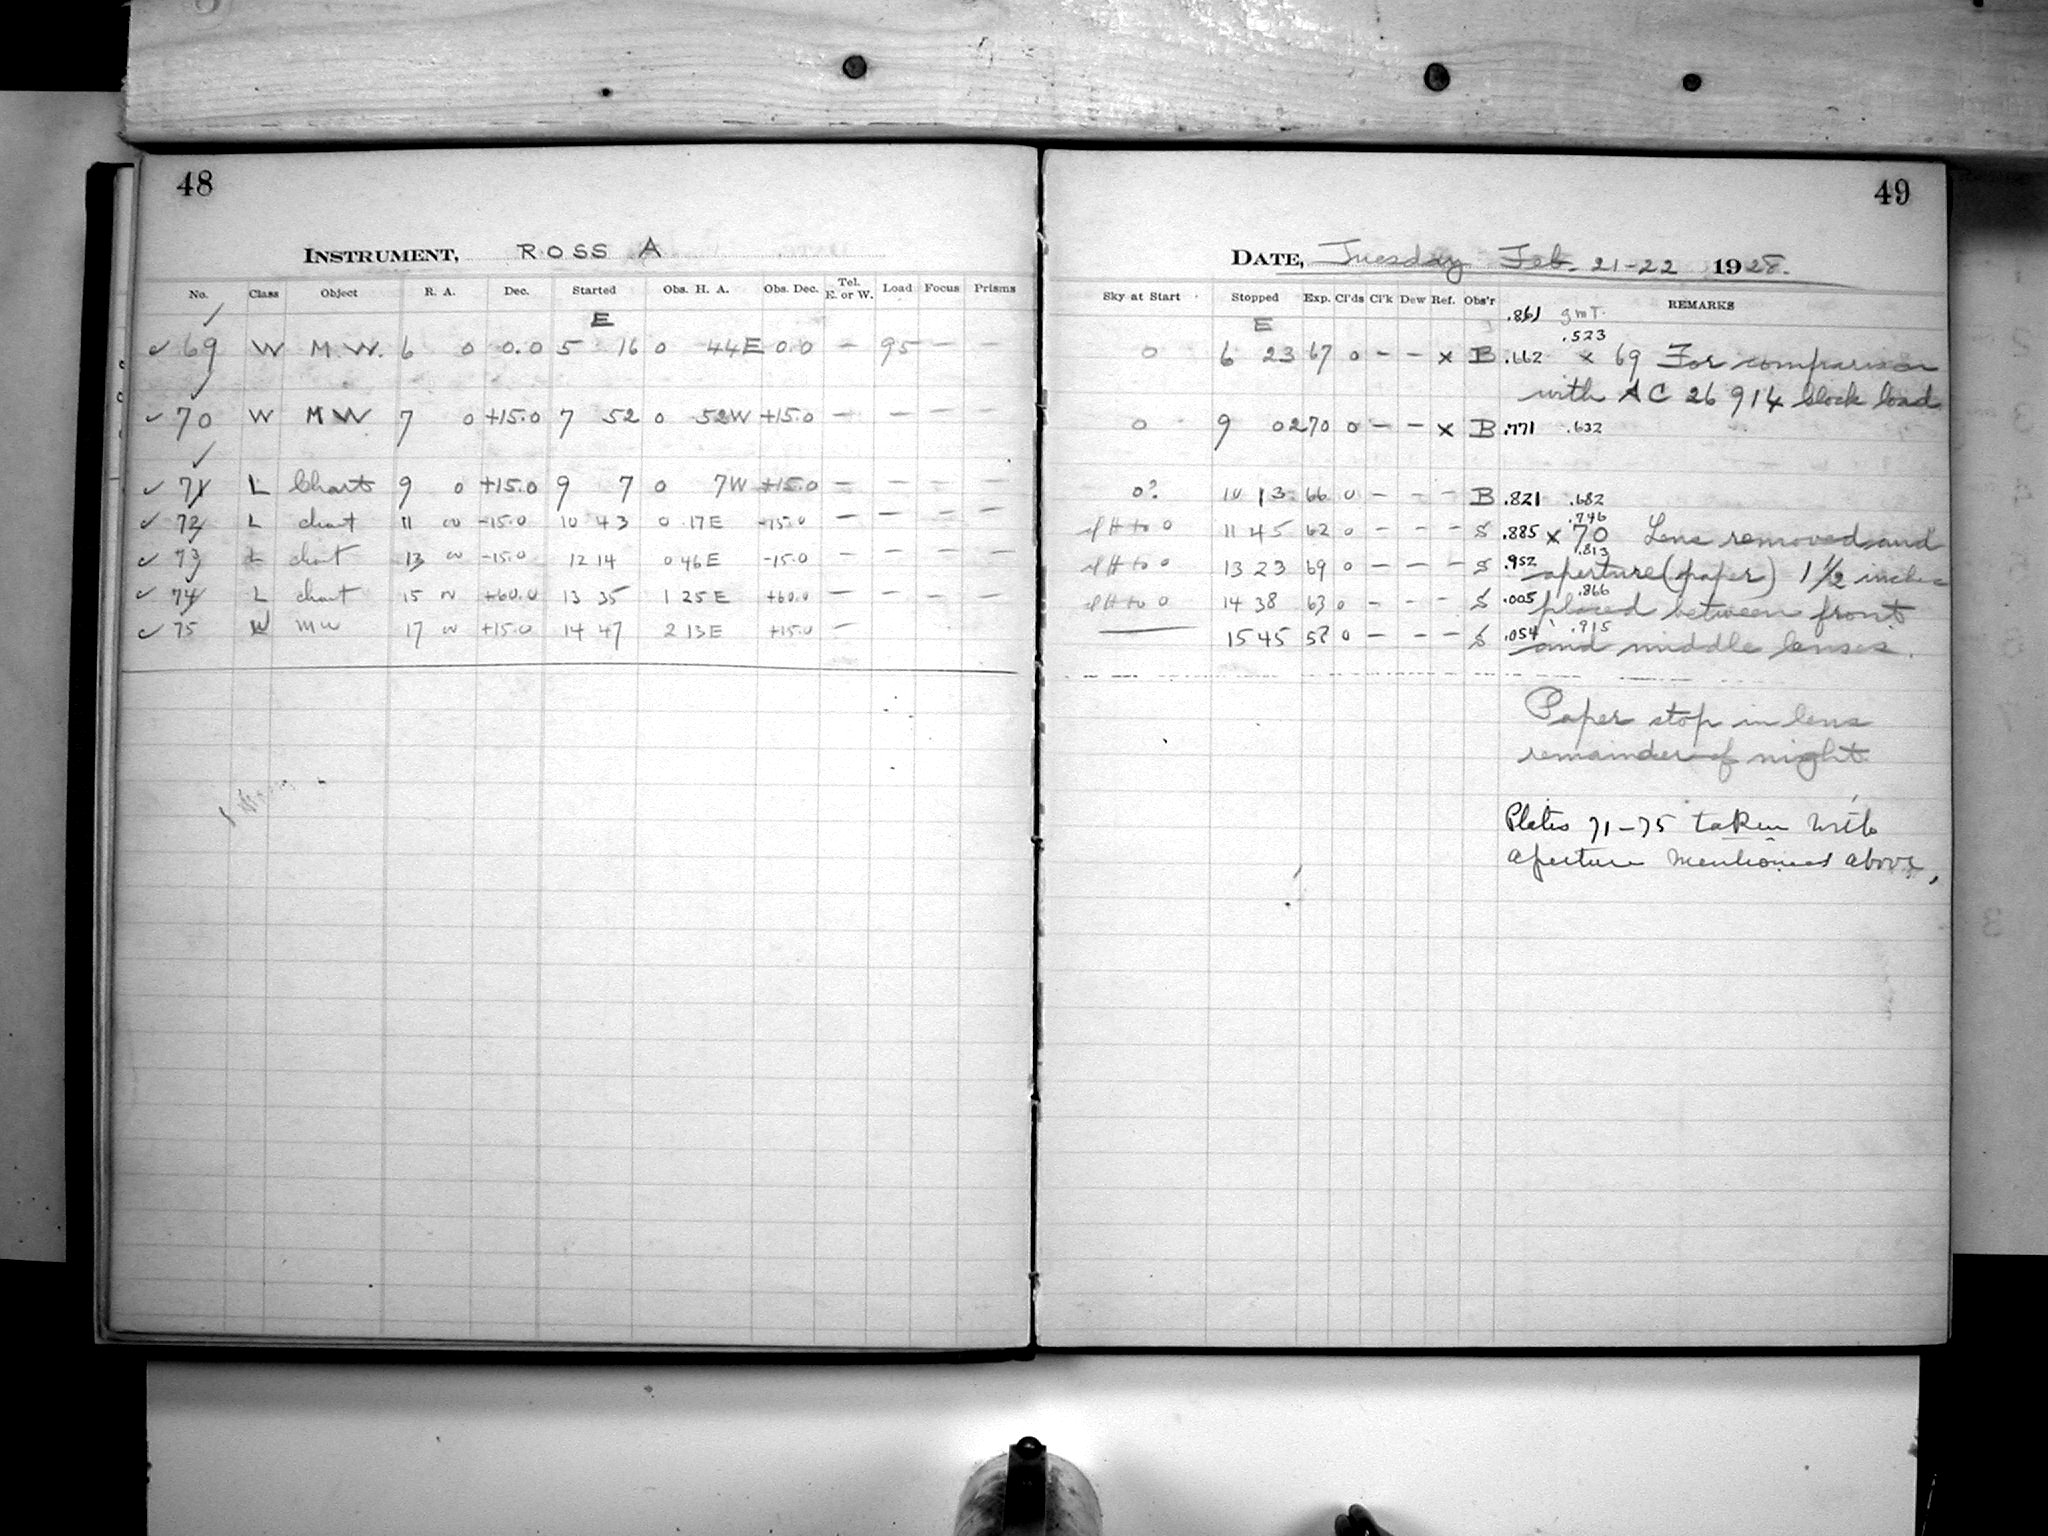 48
INSTRUMENT, ROSS A
No. Class Object R. A. Dec. Started Obs. H. A. Obs. Dec. Tel. E. or W. Load Focus Prisms
E
✓ 69 W M.W. 6 0 0.0 5 16 0 44E 0.0 — 95 — —
✓ 70 W MW 7 0 +15.0 7 52 0 52W +15.0 — — — —
✓ 71 L Chart 9 0 +15.0 9 7 0 7W +15.0 — — — —
✓ 72 L chart 11 0 -15.0 10 43 0 17E -15.0 — — — —
✓ 73 L chart 13 0 -15.0 12 14 0 46E -15.0 — — — —
✓ 74 L chart 15 0 +60.0 13 35 1 25E +60.0 — — — —
✓ 75 W MW 17 0 +15.0 14 47 2 13E +15.0 —
49
DATE, Tuesday Feb. 21-22 1928.
Sky at Start Stopped Exp. Cl'ds Cl'k Dew Ref. Obs'r REMARKS
E .861 GMT.
.523
0 6 23 67 0 — — x B .662 x 69 For comparison
with AC 26914 block load
0 9 02 70 0 — — x B .771 .632
0? 10 13 66 0 — — — B .821 .682
.746
sl H to 0 11 45 62 0 — — — S .885 x 70 Lens removed and
.813
sl H to 0 13 23 69 0 — — — S .952 aperture (paper) 1 1/2 inches
.866
sl H to 0 14 38 63 0 — — — S .005 placed between front
.915
— 15 45 58 0 — — — S .054 and middle lenses.
Paper stop in lens
remainder of night.
Plates 71-75 taken with
aperture mentioned above,